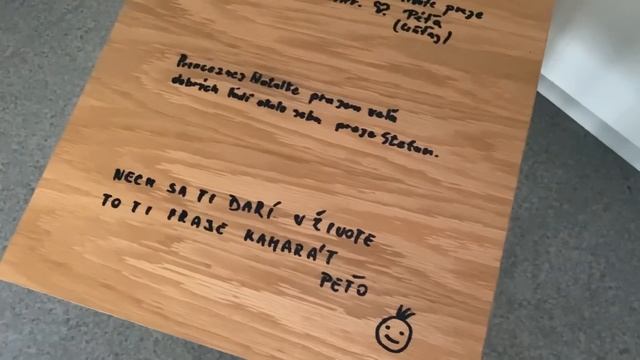 praje
Peťa
Princeznej Natalke prajem veľa
dobrích ľudí okolo seba praje Stefan.
NECH SA TI DARÍ V ŽIVOTE
TO TI PRAJE KAMARÁT
PEŤO